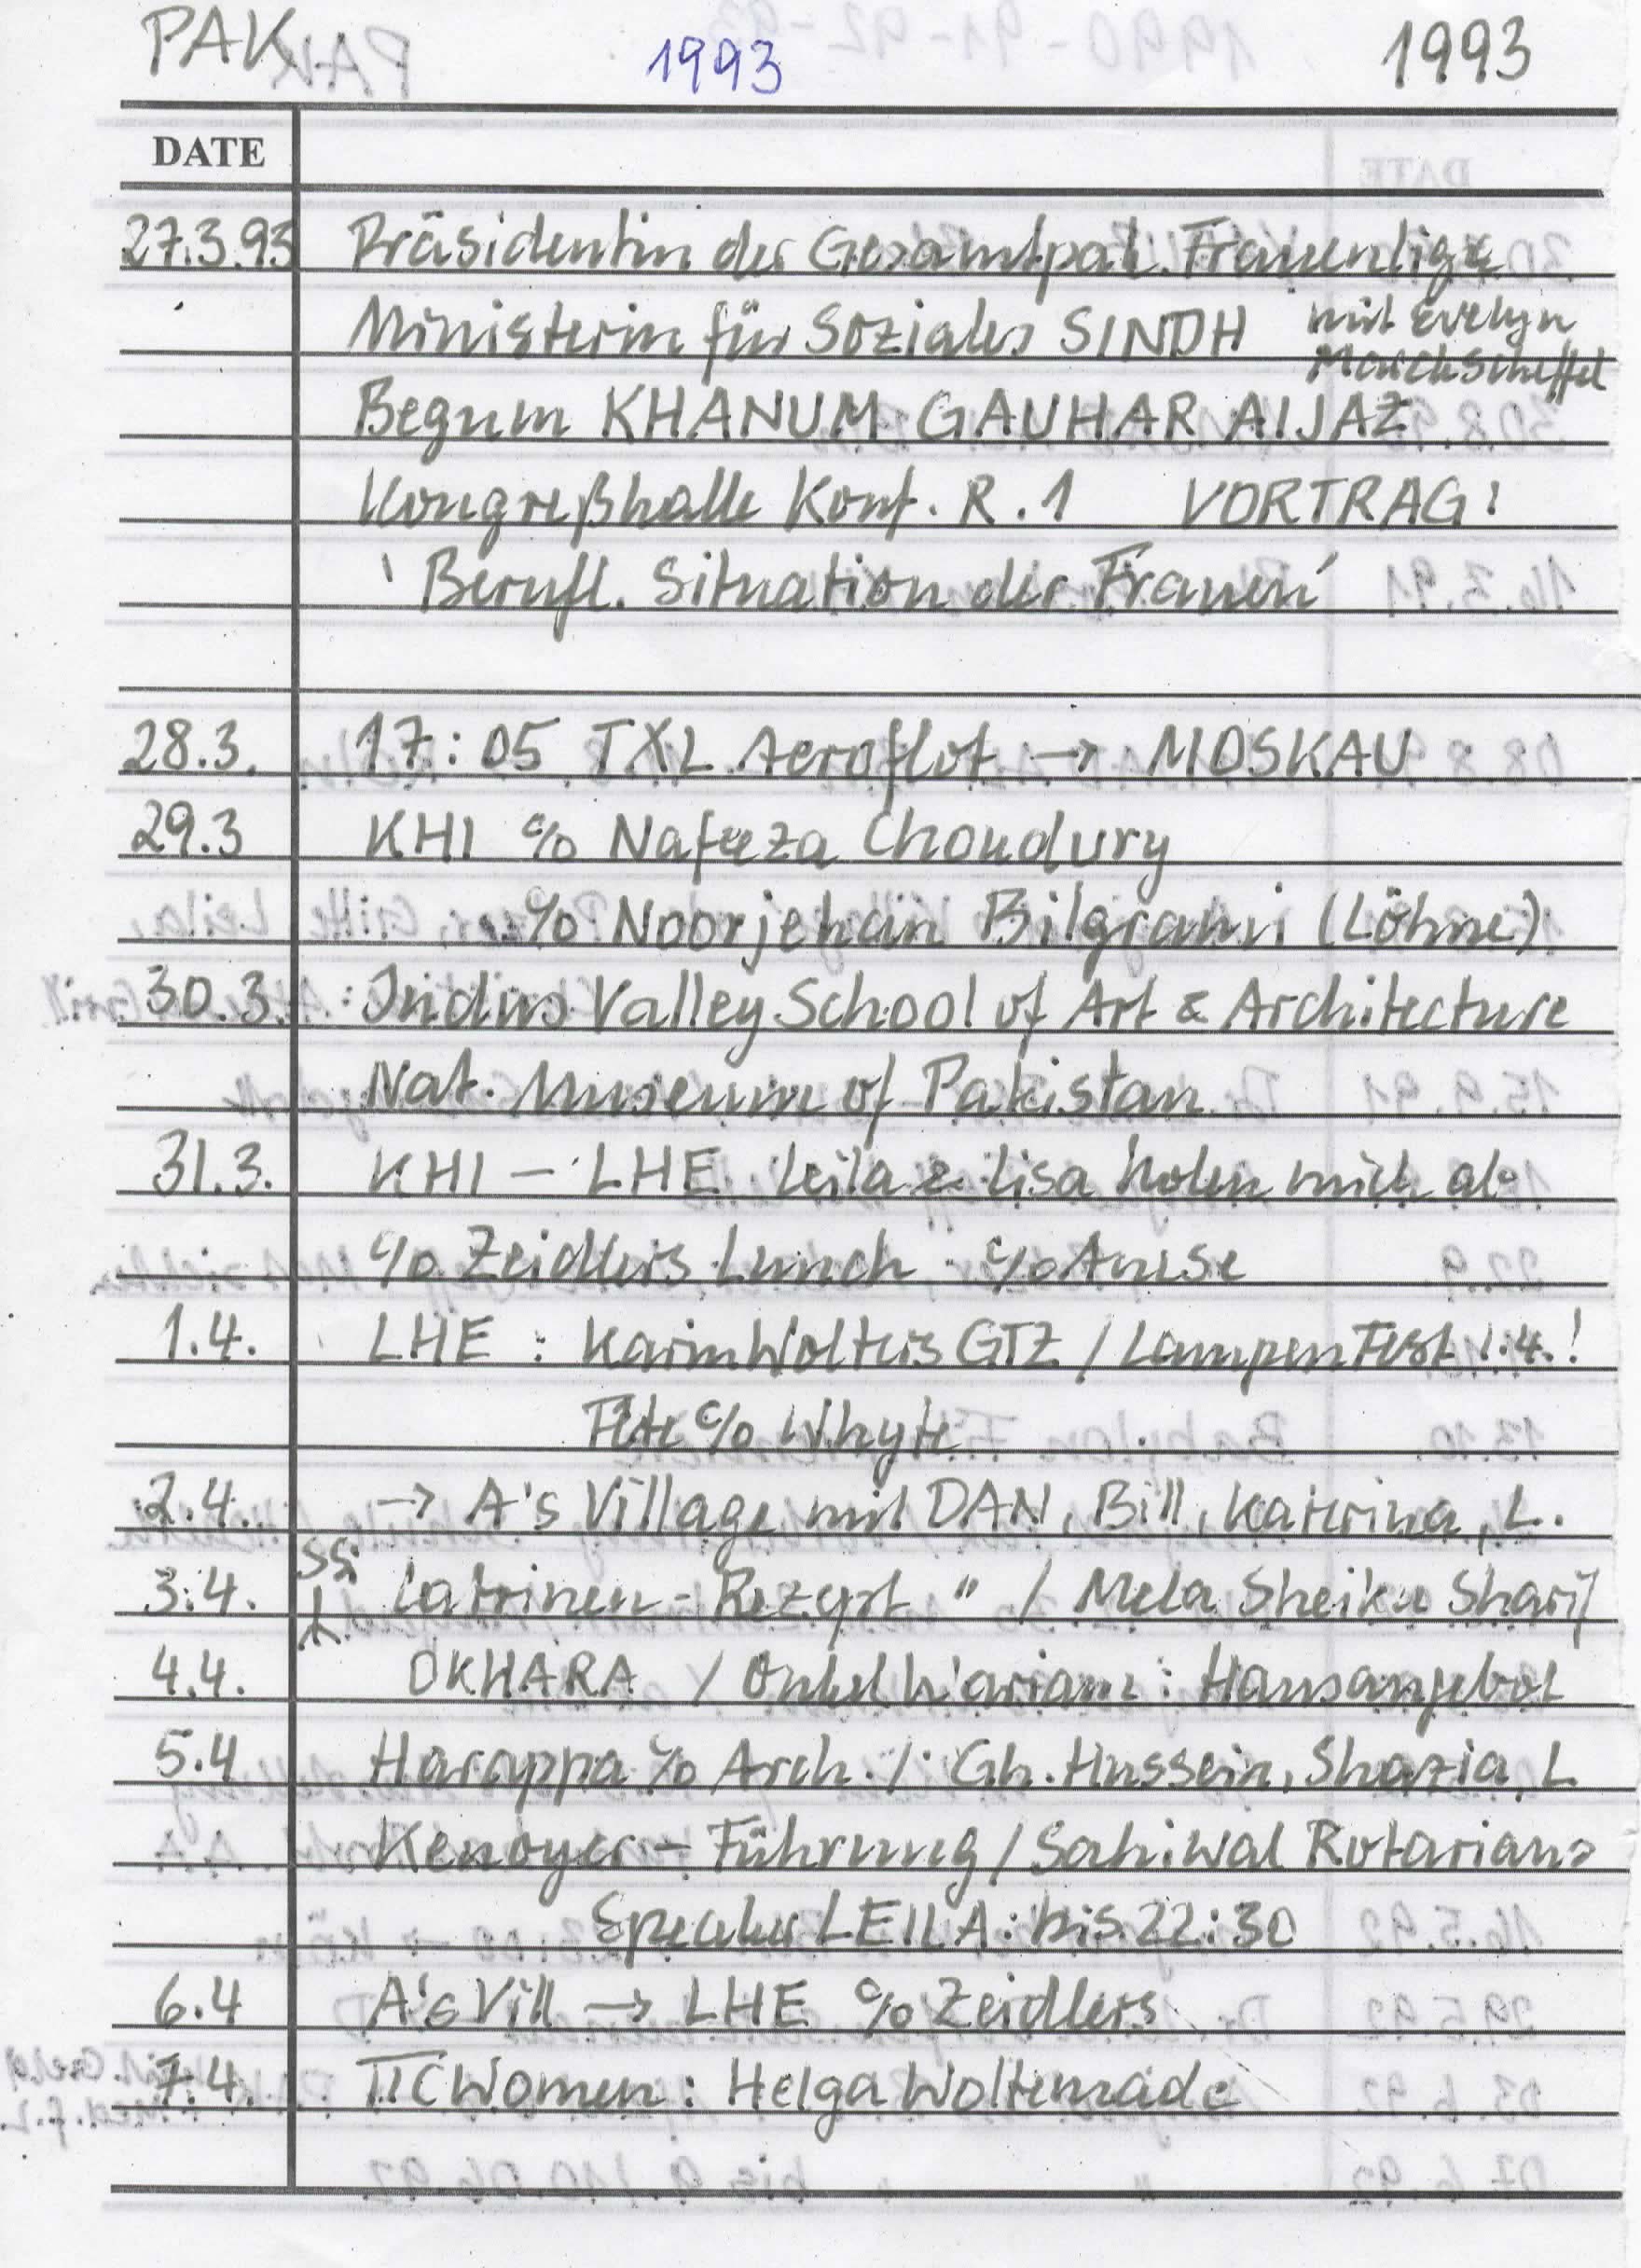 PAK 1993 1993
DATE
27.3.93 Präsidentin der Gesamtpak. Frauenliga
Ministerin für Soziales SINDH mit Evelyn
Marchscheffel
Begum KHANUM GAUHAR AIJAZ
Kongreßhalle Konf. R. 1 VORTRAG:
'Berufl. Situation der Frauen'
28.3. 17:05 TXL Aeroflot → MOSKAU
29.3 KHI c/o Nafeeza Choudury
c/o Noorjehan Bilgrami (Löhne)
30.3. Indus Valley School of Art & Architecture
Nat. Museum of Pakistan
31.3. KHI – LHE Leila & Lisa holen mich ab
c/o Zeidlers Lunch c/o Anise
1.4. LHE: Karin Wolters GTZ / Lampenfest 1.4.!
Fête c/o Whyte
2.4. → A's Village mit DAN, Bill, Katerina, L.
3.4. Latrinen-Rezept " / Mela Sheiku Sharif
4.4. OKHARA / Onkel : Hausangebot
5.4 Harappa c/o Arch. / Gh. Hussein, Shazia, L
Kenoyer – Führung / Sahiwal Rotarians
Speaker LEILA: bis 22:30
6.4 A's Vill → LHE c/o Zeidlers
7.4. TTC Women: Helga Woltemade